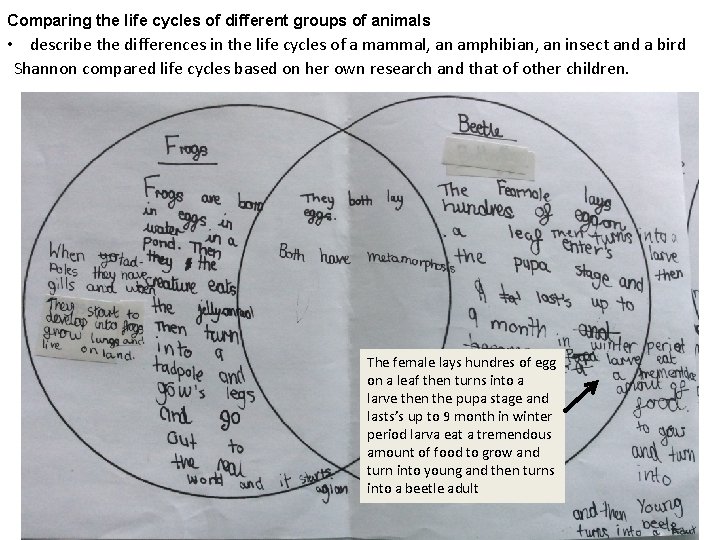 Comparing the life cycles of different groups of animals
• describe the differences in the life cycles of a mammal, an amphibian, an insect and a bird
Shannon compared life cycles based on her own research and that of other children.
Frogs
Frogs are born
in eggs in
water in a
Pond. Then
they the
creature eats
the jelly
Then turn
into a
tadpole and
grow's legs
and go
out to
the real
world and it starts
agian
When tad-
Poles they have
gills and when
They start to
develop into frogs
grow lungs and
live on land.
They both lay
eggs.
Both have metamorphosis
Beetle
The Fearmole lays
hundres of egg on
a leaf then turns into a
the pupa enter's larve
stage and then
last's up to
a month in
winter periot
larve eat
a tremendous
amout of
food
to grow
and turn
into
Young
and then
turns into a beetle
The female lays hundres of egg
on a leaf then turns into a
larve then the pupa stage and
lasts’s up to 9 month in winter
period larva eat a tremendous
amount of food to grow and
turn into young and then turns
into a beetle adult